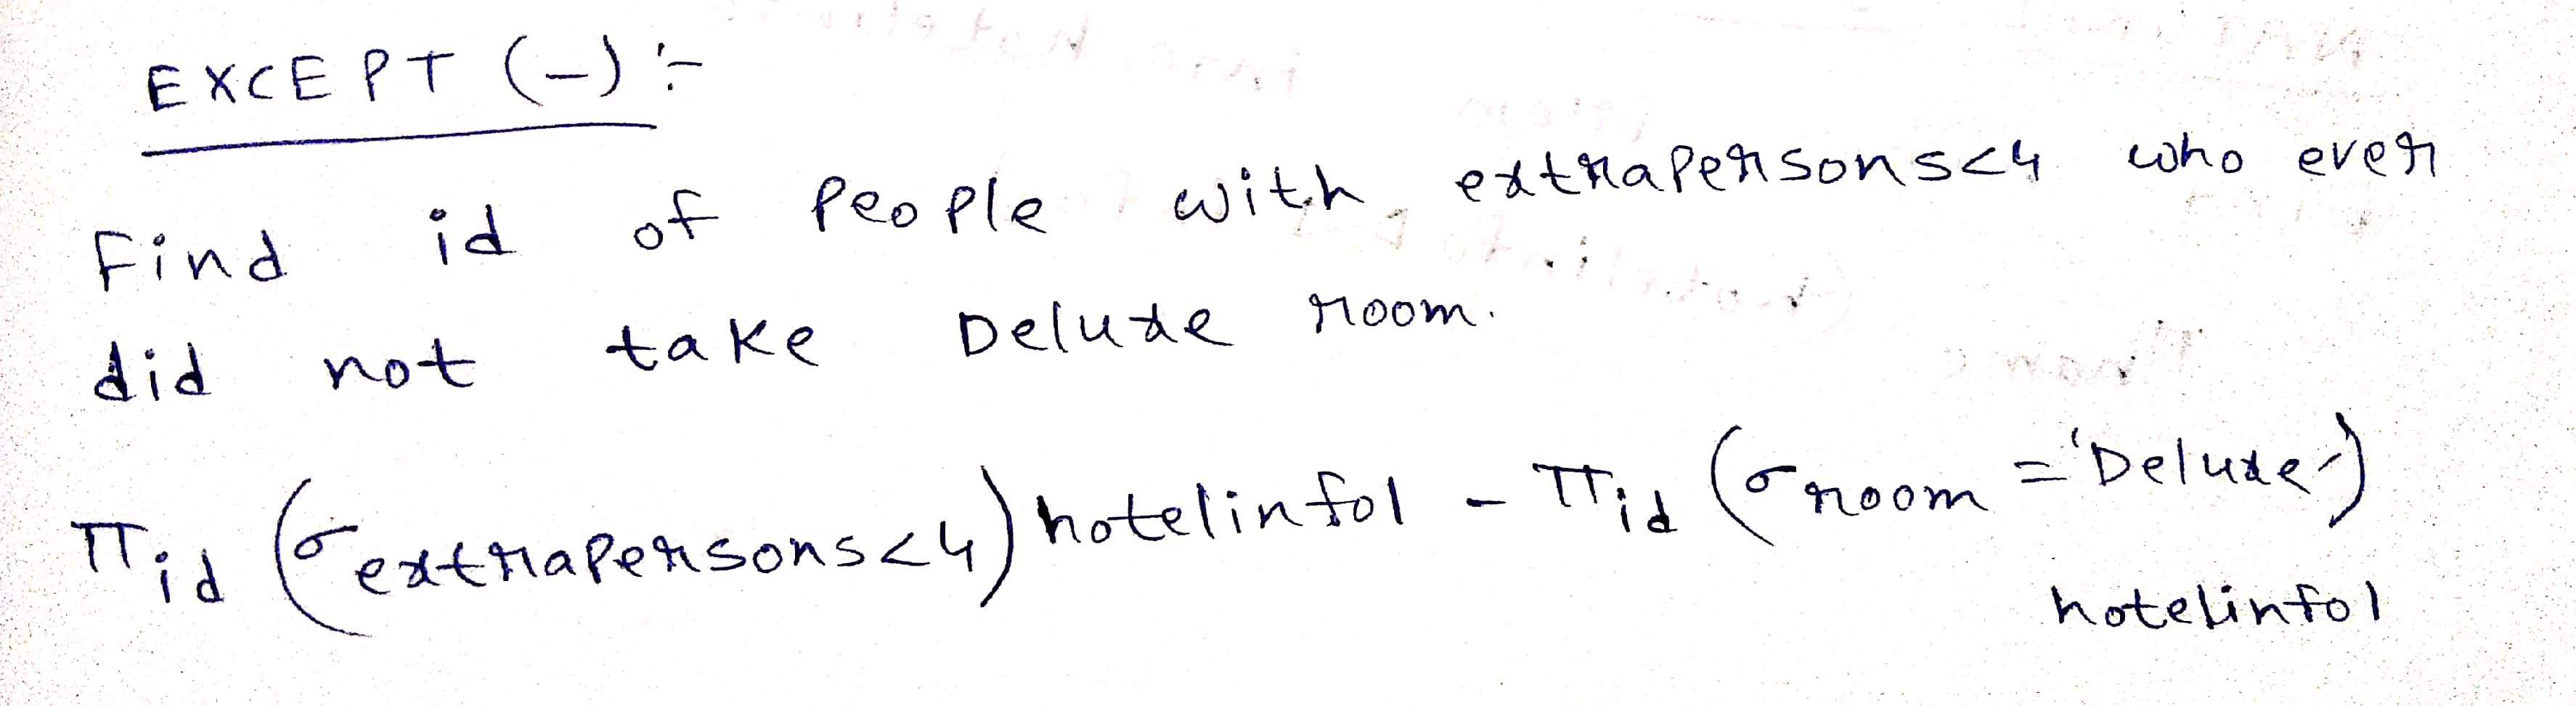 EXCEPT (-) :-
Find id of people with extrapersons<4 who ever
did not take Deluxe room.
πid (σextrapersons<4) hotelinfo1 - πid (σroom = 'Deluxe')
hotelinfo1